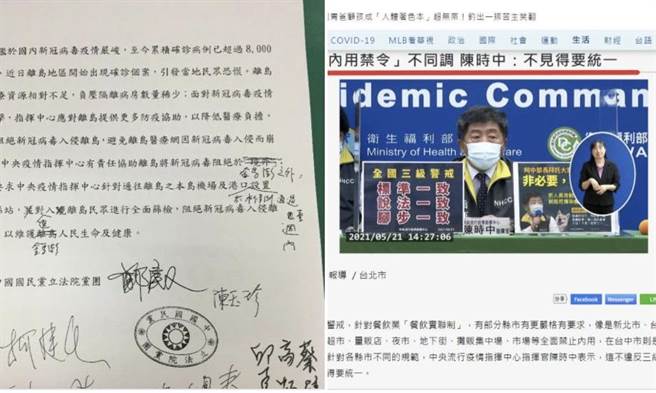 鑑於國內新冠病毒疫情嚴峻,至今累積確診病例已超過 8,000
近日離島地區開始出現確診個案,引發當地民眾恐慌。離島
療資源相對不足,負壓隔離病房數量稀少;面對新冠病毒疫情
擊,指揮中心應對離島提供更多防疫協助,以降低醫療負擔,
阻絕新冠病毒入侵離島,避免離島醫療網因新冠病毒入侵而崩
中央疫情指揮中心有責任協助離島將新冠病毒阻絕於
求中央疫情指揮中心針對通往離島之本島機場及港口設置
站,
離島民眾進行全面篩檢,阻絕新冠病毒入侵離
以維護
人民生命及健康。
中國國民黨立法院黨團
陳玉珍
中國國民黨
立法院黨團
COVID-19 MLB看華視 政治 國際 社會 運動 生活 財經 台語
內用禁令」不同調 陳時中:不見得要統一
idemic Comman
衛生福利部
Ministry of Health
全國三級警戒
標準一致
說法一致
腳步一致
NHCC
非必要,
陳時中
2021/05/21 14:27:06
報導 / 台北市
分享 Facebook Messenger
警戒,針對餐飲業「餐飲實聯制」,有部分縣市有更嚴格有要求,像是新北市、台
超市、量販店、夜市、地下街、攤販集中場、市場等全面禁止內用,在台中市則是
針對各縣市不同的規範,中央流行疫情指揮中心指揮官陳時中表示,這不違反三級
得要統一。